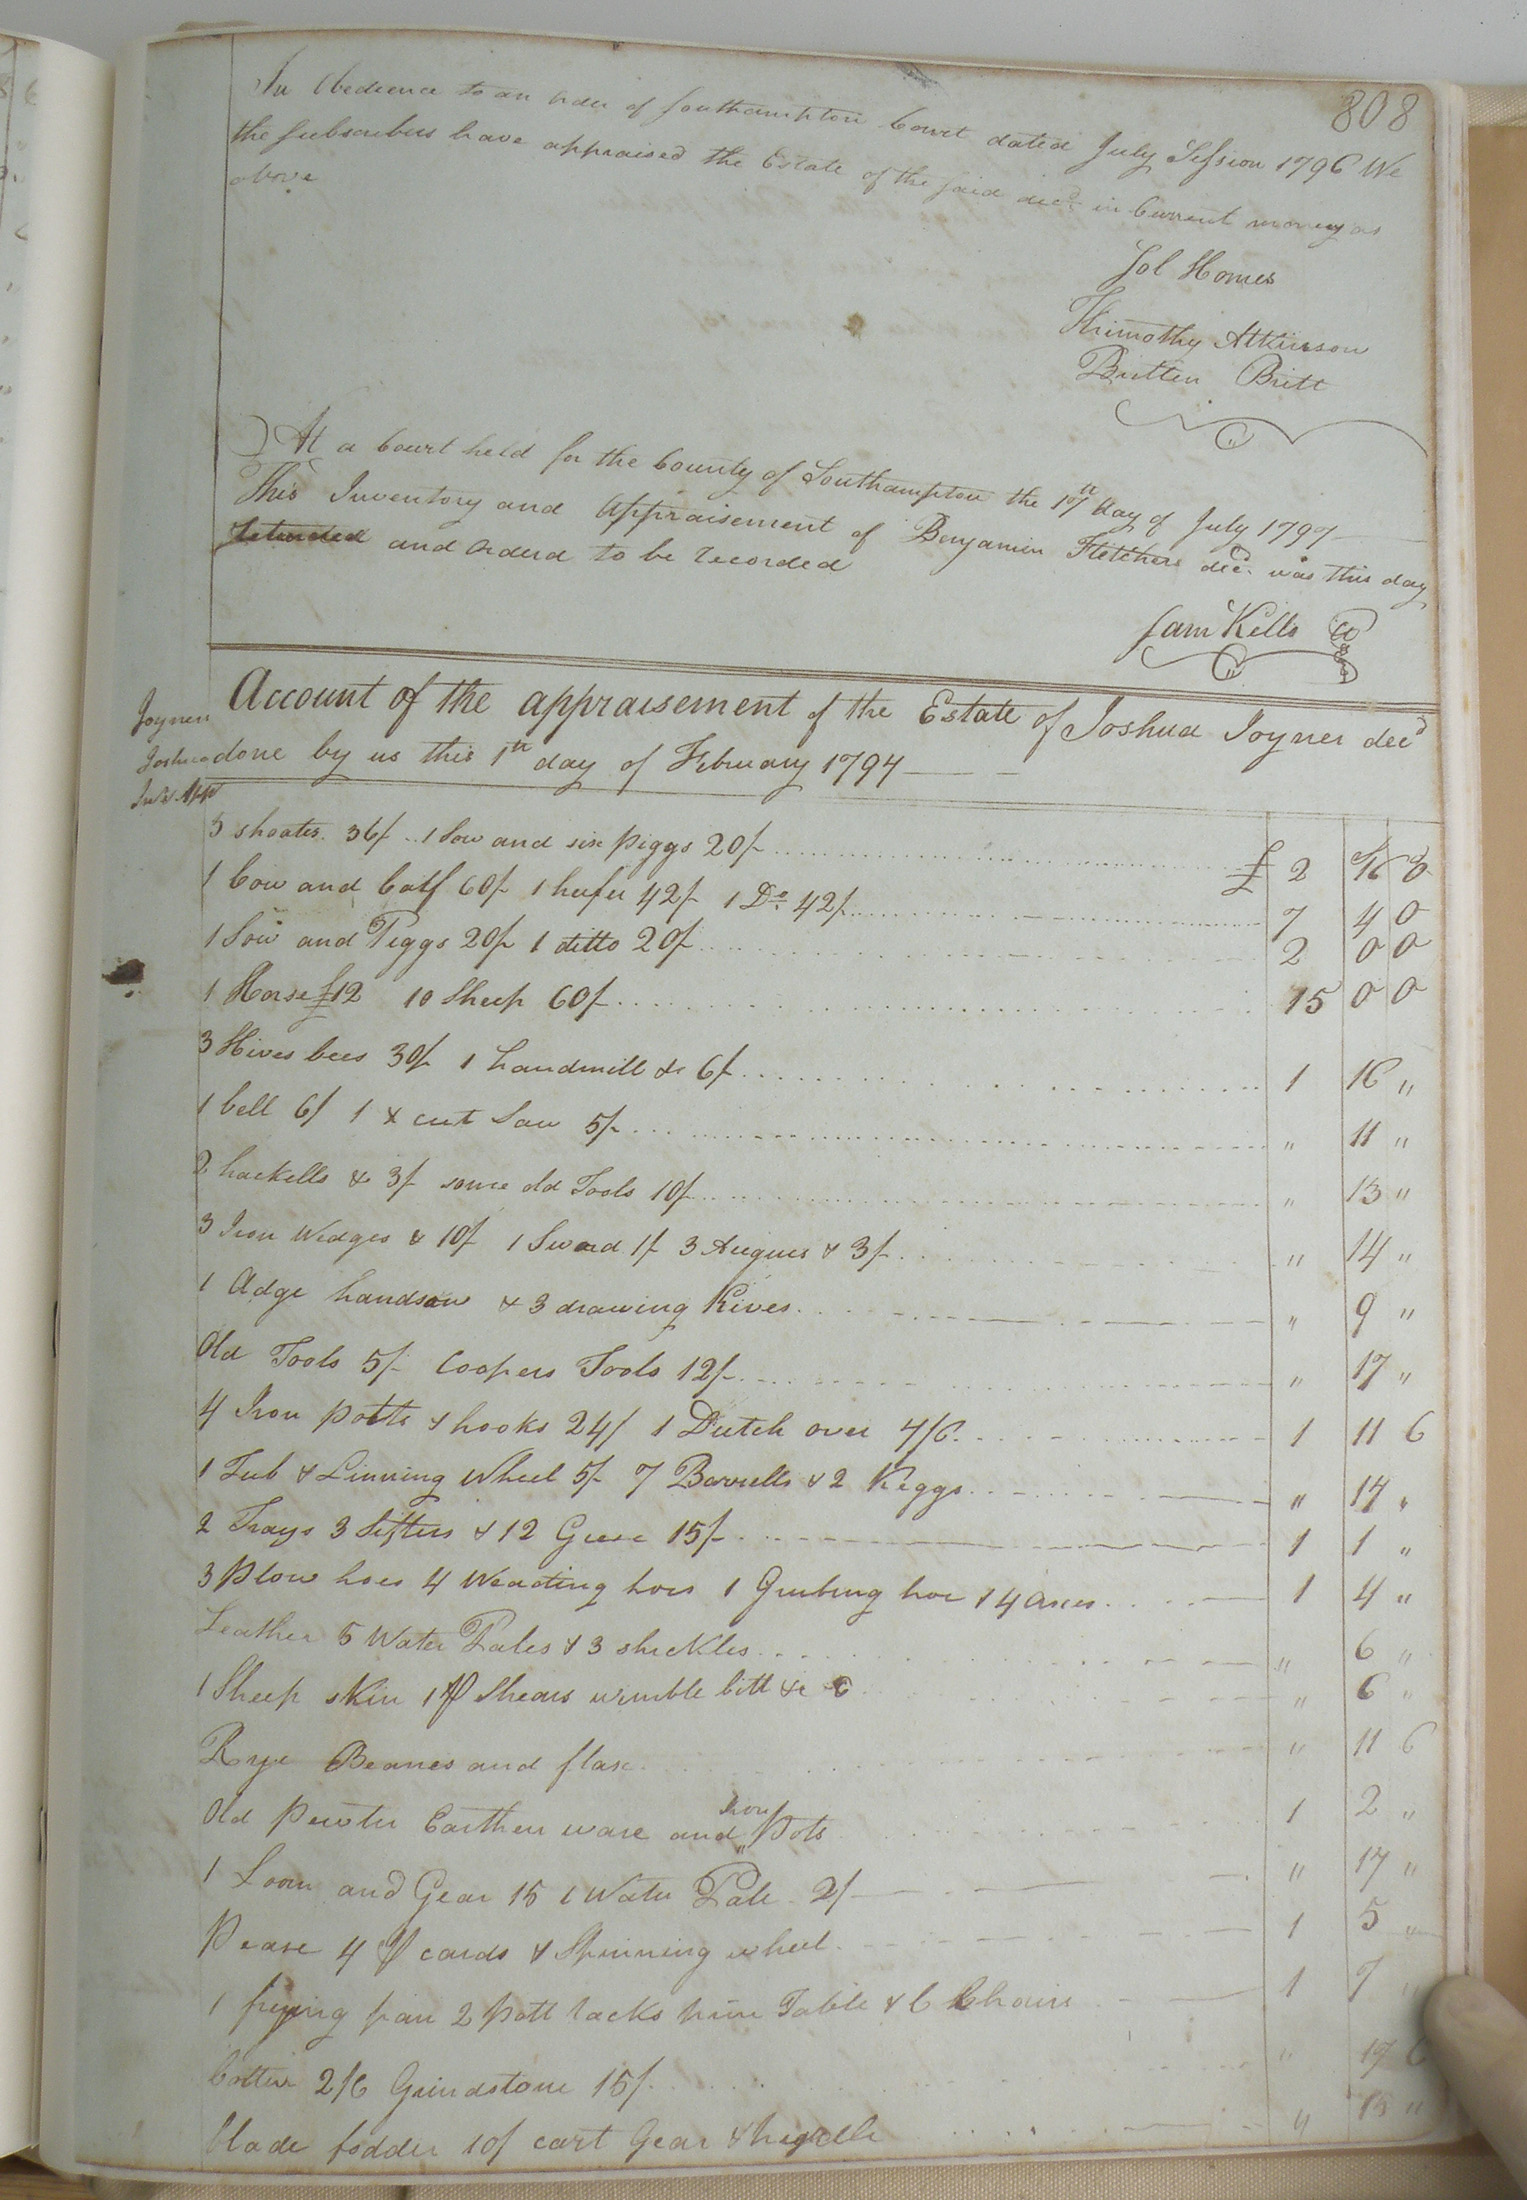 808
In Obedience to an order of Southampton Court dated July Session 1796 We
the Subscribers have appraised the Estate of the said decd in Current money as
above
Sol Homes
Thimothy Atkinson
Britten Britt
At a Court held for the County of Southampton the 17th day of July 1797
This Inventory and Appraisement of Benjamin Fletchers decd. was this day
Returned and orderd to be recorded
Sam Kello
Joyner
Joshua
Account of the appraisement of the Estate of Joshua Joyner decd
done by us this 1th day of February 1794
shoates. 36/ .. 1 Sow and six piggs 20/ £ 2 16 0
1 Cow and Calf 60/ 1 heifer 42/ 1 Do. 42/ 7 4 0
1 Sow and Piggs 20/ 1 ditto 20/ 2 0 0
1 Horse £12 10 Sheep 60/ 15 0 0
3 Hives bees 30/ 1 handmill &c 6/ 1 16 "
1 bell 6/ 1 X cut Saw 5/ " 11 "
2 hackells & 3/ some old Tools 10/ " 13 "
3 Iron Wedges & 10/ 1 Sword 1/ 3 Augues & 3/ " 14 "
1 Adge handsaw & 3 drawing Kives " 9 "
Old Tools 5/ Coopers Tools 12/ " 17 "
4 Iron potts & hooks 24/ 1 Dutch oven 7/6 1 11 6
1 Tub & Linning Wheel 5/ 7 Barrells & 2 Keggs " 17 "
2 Trays 3 Sifters & 12 Geese 15/ 1 1 "
3 Plow hoes 4 Weading hoes 1 Grubing hoe & 4 axes 1 4 "
Leather 5 Water Pales & 3 shickles " 6 "
1 Sheep skin 1 p Shears wimble bitt &c " 6 "
Rye Beanes and flax " 11 6
Old Pewter Earthen ware and Iron Pots 1 2 "
1 Loom and Gear 15 1 Water Pale 2/ " 17 "
Pease 4 p cards & Spinning wheel 1 5 "
1 frying pan 2 pott racks pine Table & 6 Chairs 1 7 "
Cotten 2/6 Grindstone 15/ " 17 6
blade fodder 10/ cart Gear & " 15 "